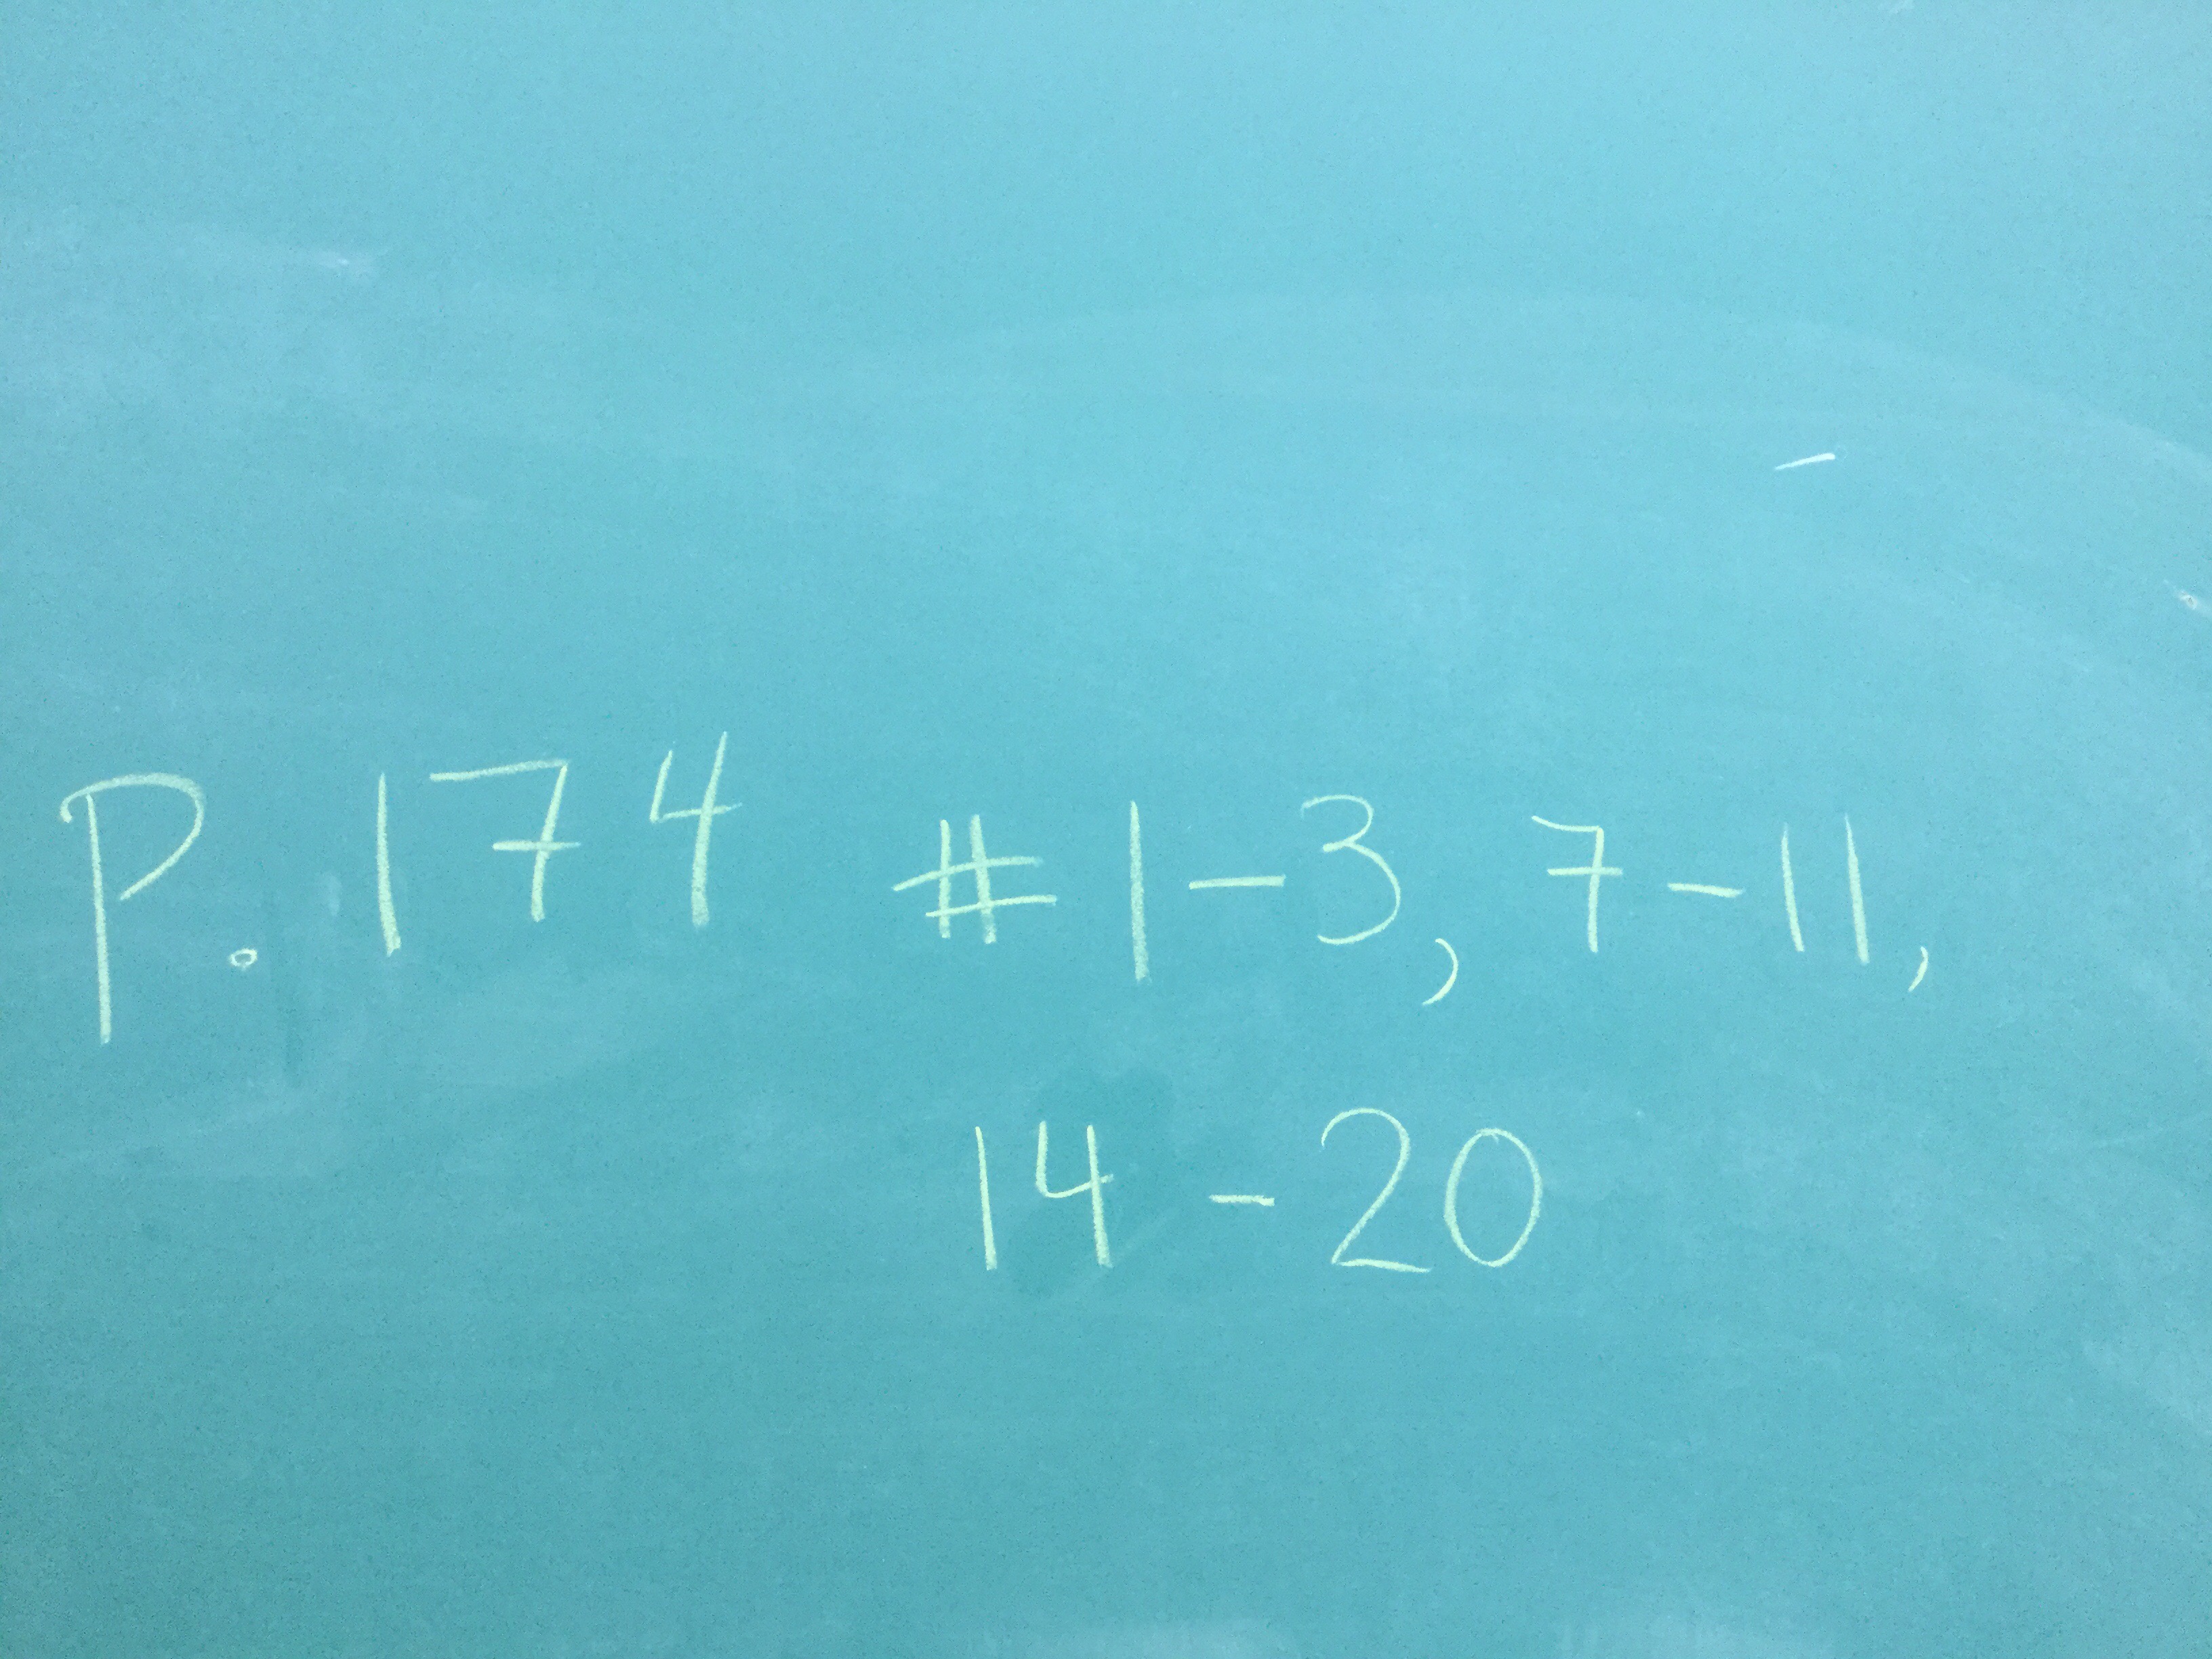 P. 174 # 1-3, 7-11,
14-20